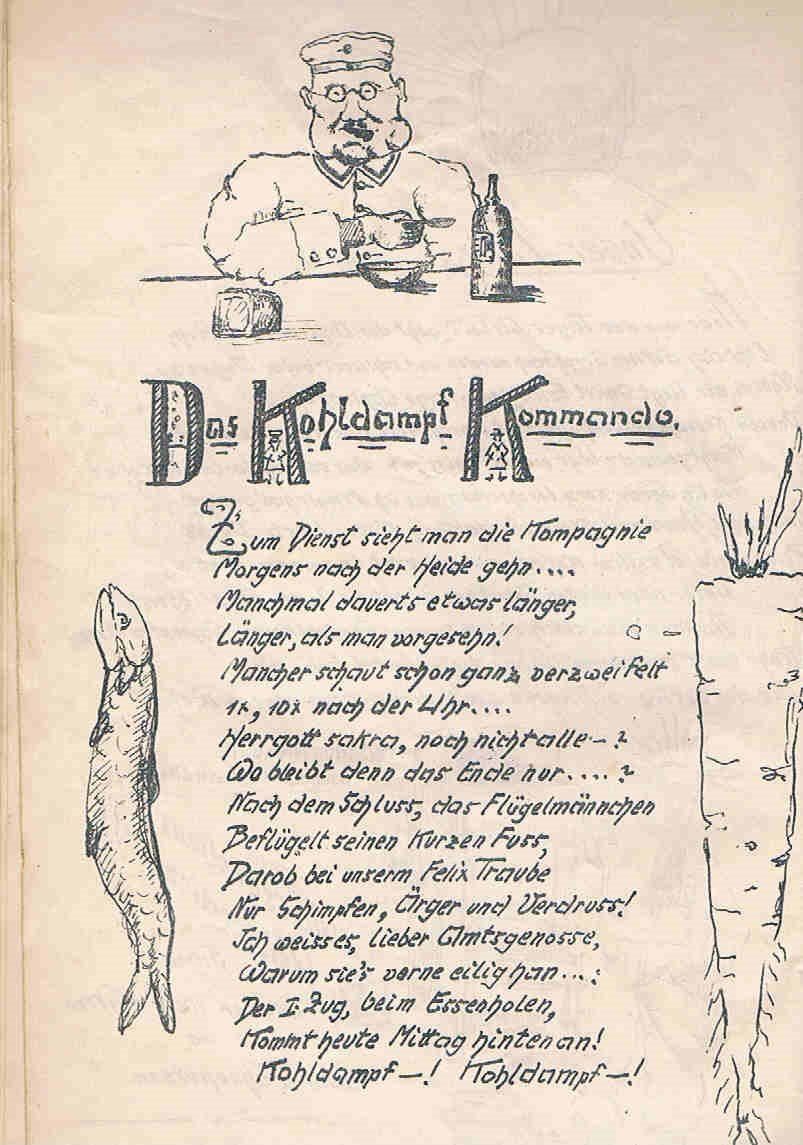 Das Kohldampf Kommando.
Zum Dienst sieht man die Kompagnie
Morgens nach der Heide gehn....
Manchmal dauerts etwas länger,
Länger, als man vorgesehn!
Mancher schaut schon ganz verzweifelt
1x, 10x nach der Uhr....
Herrgott sakra, noch nicht alle – ?
Wo bleibt denn das Ende nur....?
Nach dem Schluss, das Flügelmännchen
Beflügelt seinen kurzen Fuss,
Darob bei unserm Felix Traube
Nur Schimpfen, Ärger und Verdruss!
Ich weiss es, lieber Amtsgenosse,
Warum sie's vorne eilig han...:
Der I. Zug, beim Essenholen,
Kommt heute Mittag hinten an!
Kohldampf –! Kohldampf –!